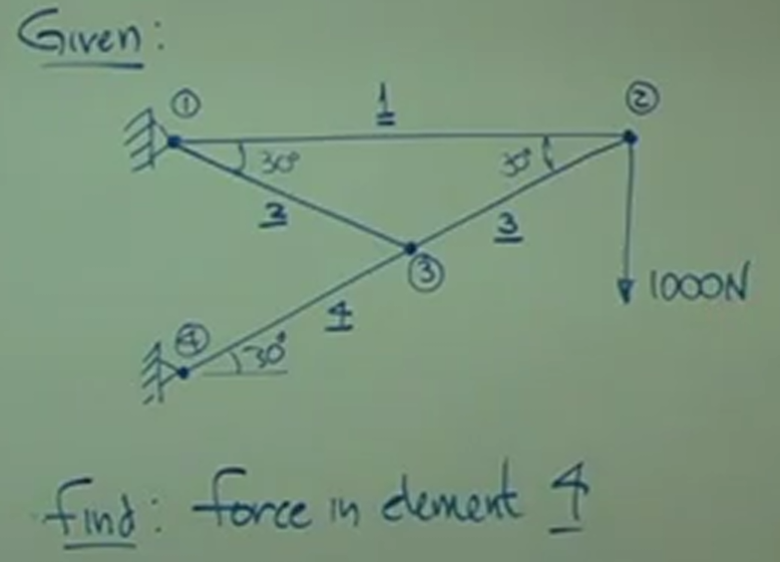 Given:
① 1 ②
30° 30°
2 3
③
1000N
4
④
30°
Find: force in element 4